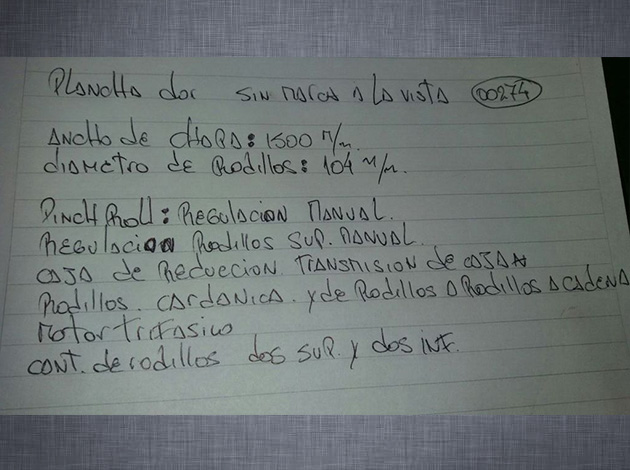 PLANCHA dor SIN MARCA A LA VISTA 00274
ANCHO de CHAPA: 1500 M/m.
diAMETRO de Rodillos: 104 M/m.
PINCH ROLL: REGULACION MANUAL.
REGULACION Rodillos SUP. MANUAL.
CAJA de REDUCCION TRANSMISION de CAJA A
Rodillos CARDANICA. y de Rodillos A Rodillos A CADENA
MOTOR TRIFASICO
CONT. de rodillos dos SUP. y dos INF.